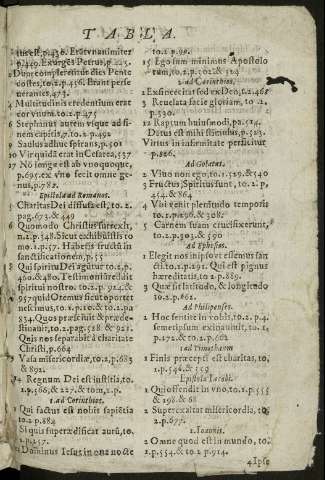 TABLA.
tus est, p.430. Erāt vnanimiter
p.449. Exurgēs Petrus, p.445.
2 Dum complerētur dies Pente
costes, to.2. p.456. Erant perse
uerantes, 473.
4 Multitudinis credentium erat
cor vnum. to.2. p.475
6 Stephanus autem
nem capitis, 7. to.2. p.492
9 Saulus adhuc spirans, p.501
10 Vir quidā erat in Cesarea, 537
27 Nō longe est ab vno quoque,
p.695. ex vno fecit omne ge-
nus, p.782.
Epistola ad Romanos.
Charitas Dei diffusa est, to.2.
pag.673. & 449
6 Quomodo Christus surrexit,
sanctificationem, p.55
8 Qui spiritu Dei agūtur to.2. p.
spiritui nostro. to.2. p.924. &
957. quid Oremus sicut oportet
nescimus, to.1. to.2. to.2. pa
554. Quos præsciuit & præde-
stinauit, to.2. pag.528 & 921.
Quis nos separabit à charitate
Christi, p.664
Vasa misericordiæ, to.2, p.683
& 892
14 Regnum Dei est iustitia, to.
1. ad Corinthios.
1 Qui factus est nobis sapiētia
to.2 p.884
3 Si quis superædificat aurū, to.
2. p.257.
12 Dominus Iesus in qua nocte
to.2. p.98.
15 Ego sum minimus Apostolo
rum, to.2. p.502. & 524
2. ad Corinthios.
3 Reuelata facie gloriam, to.2.
p.530.
12 Raptum huiusmodi, pa.514.
Datus est mihi stimulus, p.523.
Virtus in infirmitate perficitur
p.826.
Ad Galatas.
2 Viuo ego non ego, to.1. p.529. & 540
5 Fructus Spiritus sunt, to.2. p.
254. & 864
4 Vbi venit plenitudo temporis
to.1. p.296. & 308.
5 Carnem suam crucifixerunt,
to.2. p.503. & 590
Ad Ephesios.
1 Elegit nos in ipso vt essemus san
cti. to.2. p.191. Qui est pignus
hæreditatis, to.2. p.889.
3 Quæ sit latitudo, & longitudo
to.2. p.662.
Ad Philipenses.
2 Hoc sentite in vobis, to.2. p.4.
semetipsum exinaniuit, to.1.
p.172. & to.2. p.662
1. ad Timotheum
1 Finis præcepti est charitas, to.
1. p.546. & 559
Epistola Iacobi.
2 Qui offendit in vno, to.2. p.555
& 198. & 68
2 Superexaltat misericordia, to.
2. p.677.
1. Ioannis.
2 Omne quod est in mundo, to.
2. p.554. & to.2. p.914.
4 Ipse